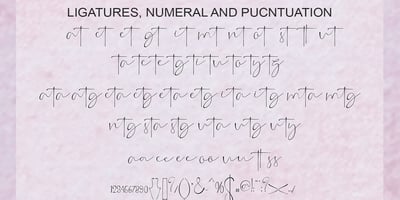 LIGATURES, NUMERAL AND PUCNTUATION
at et et gt it mt nt ot st tt ut
ta te te tg ti tu to ty tz
ata atg eta etg eta etg ita itg mta mtg
ntg sta stg uta utg uty
aa ee ee oo uu tt ss
1234567890